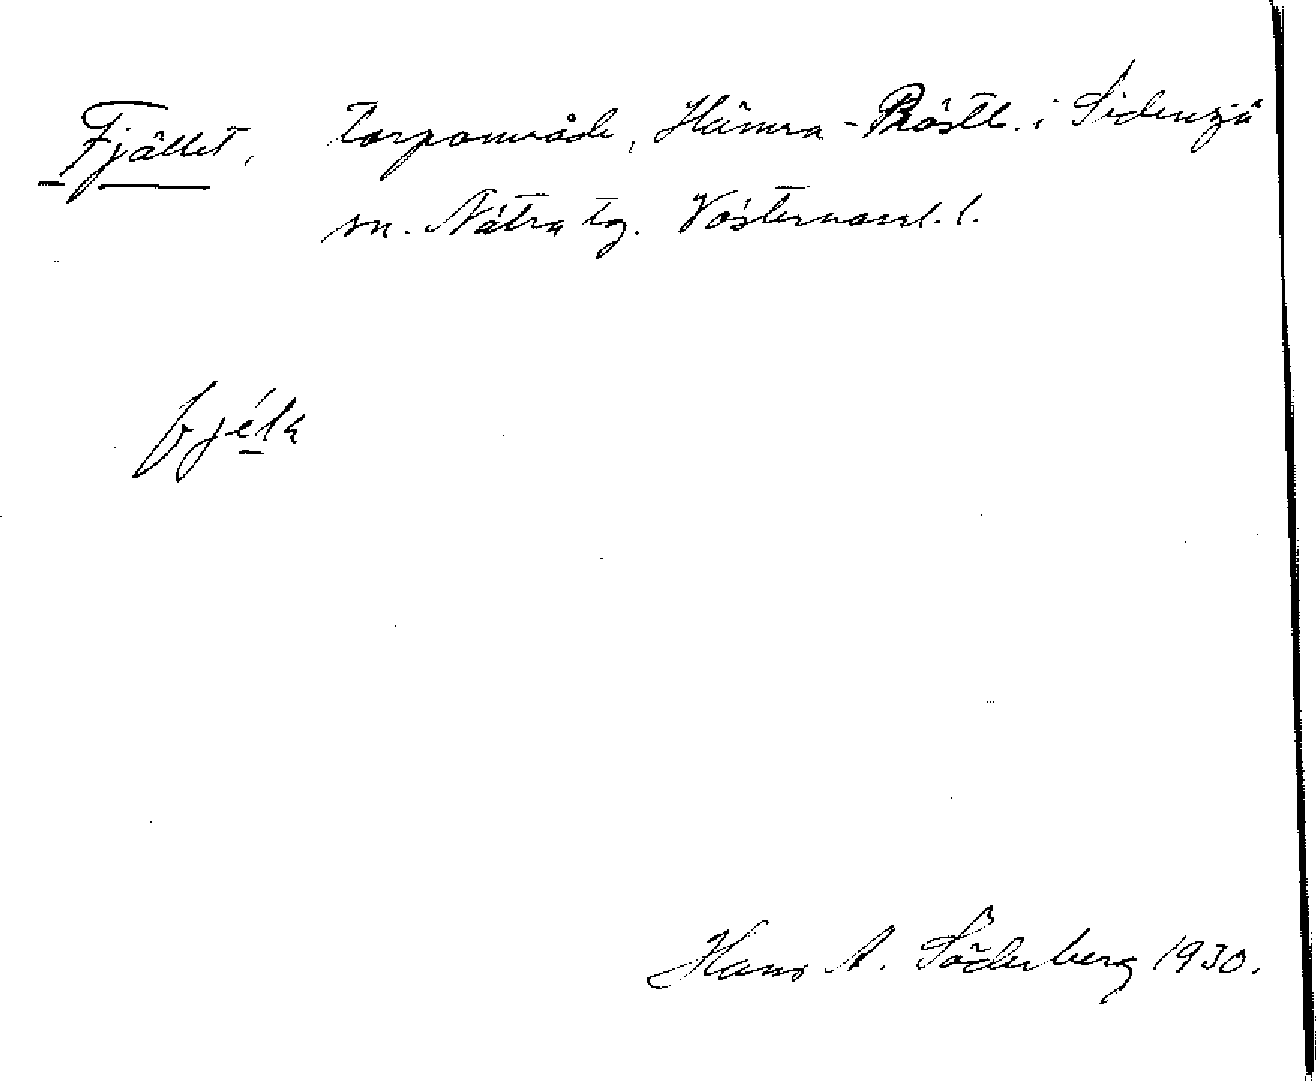 Fjället, torpområde, Hämra - Prästb. i Sidensjö
sn. Nätra tg. Västernorrl. l.
fjélа
Hans A. Söderberg 1930.